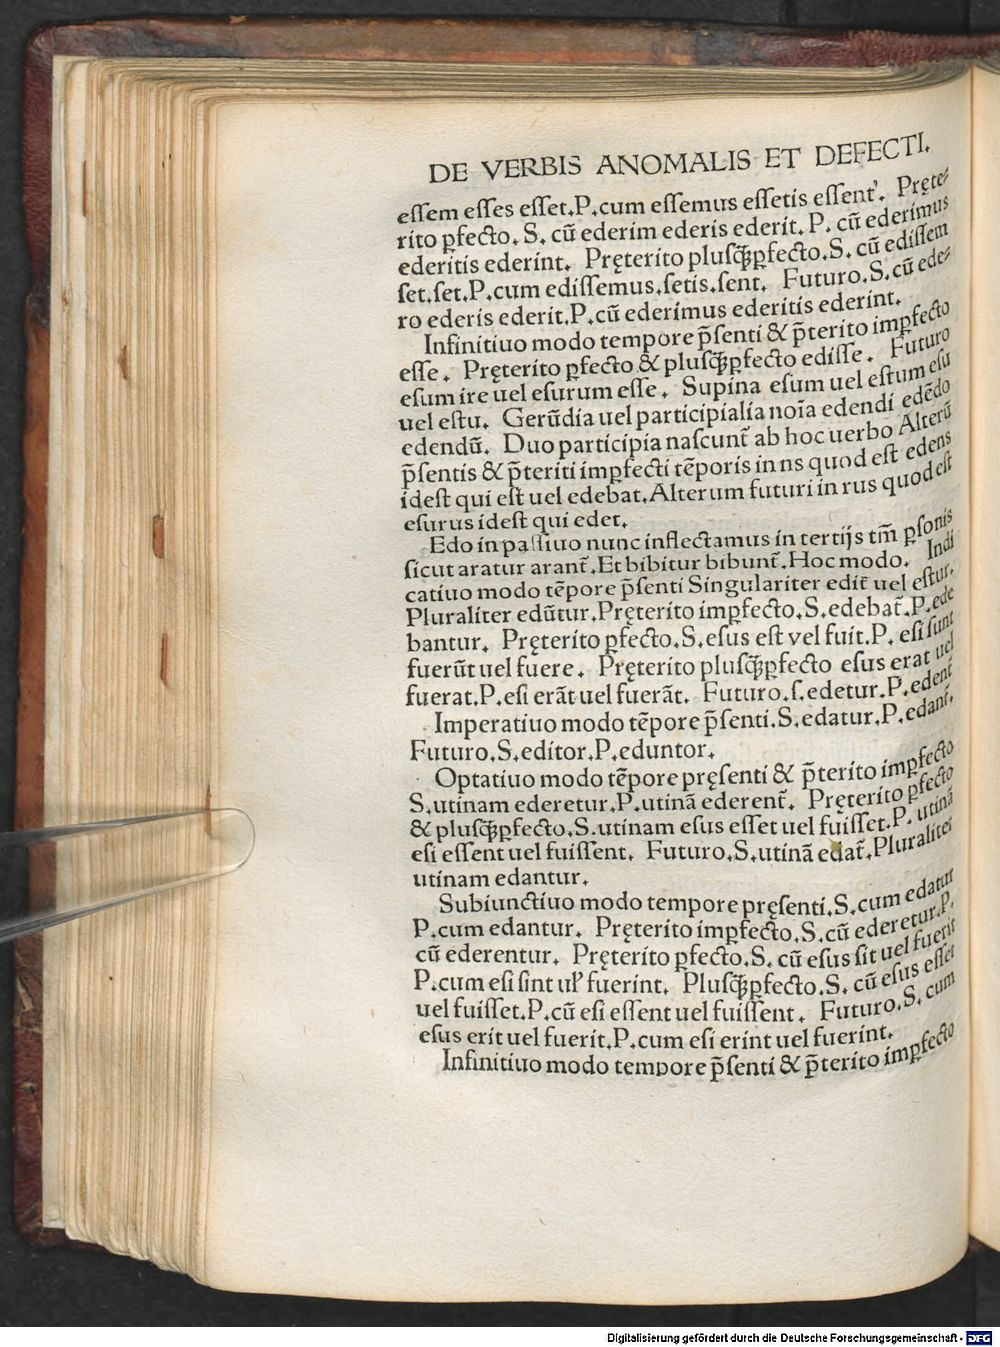 DE VERBIS ANOMALIS ET DEFECTI.
eſſem eſſes eſſet.P.cum eſſemus eſſetis eſſent. Pręte⸗
rito ꝑfecto. S. cū ederim ederis ederit. P. cū ederimus
ederitis ederint. Pręterito pluſꝙ̃ꝑfecto.S. cū ediſſem
ſet.ſet.P.cum ediſſemus.ſetis.ſent. Futuro.S.cū ede⸗
ro ederis ederit.P.cū ederimus ederitis ederint.
Infinitiuo modo tempore p̄ſenti & p̄terito imꝑfecto
eſſe. Pręterito ꝑfecto & pluſꝙ̃ꝑfecto ediſſe. Futuro
eſum ire uel eſurum eſſe. Supina eſum uel eſtum eſu
uel eſtu. Gerūdia uel participialia noīa edendi edēdo
edendū. Duo participia naſcunt̄ ab hoc uerbo Alterū
p̄ſentis & p̄teriti imꝑfecti tēporis in ns quod eſt edens
ideſt qui eſt uel edebat.Alterum futuri in rus quod eſt
eſurus ideſt qui edet.
Edo in paſſiuo nunc inflectamus in tertijs tm̄ ꝑſonis
ſicut aratur arant̄.Et bibitur bibunt̄.Hoc modo. Indi
catiuo modo tēpore p̄ſenti Singulariter edit̄ uel eſtur.
Pluraliter edūtur.Pręterito imꝑfecto.S.edebat̄.P.ede
bantur. Pręterito ꝑfecto.S.eſus eſt vel fuit.P. eſi ſunt
fuerūt uel fuere. Pręterito pluſꝙ̃ꝑfecto eſus erat uel
fuerat.P.eſi erāt uel fuerāt. Futuro.ſ.edetur.P.edent̄
Imperatiuo modo tēpore p̄ſenti.S.edatur.P.edant̄.
Futuro.S.editor.P.eduntor.
Optatiuo modo tēpore pręſenti & p̄terito imꝑfecto
S.utinam ederetur.P.utinā ederent̄. Pręterito ꝑfecto
& pluſꝙ̃ꝑfecto.S.utinam eſus eſſet uel fuiſſet.P. utinā
eſi eſſent uel fuiſſent. Futuro.S.utinā edat̄.Pluraliter
utinam edantur.
Subiunctiuo modo tempore pręſenti.S.cum edatur
P.cum edantur. Pręterito imꝑfecto.S.cū ederetur.P.
cū ederentur. Pręterito ꝑfecto.S. cū eſus ſit uel fuerit
P.cum eſi ſint ul' fuerint. Pluſꝙ̃ꝑfecto.S. cū eſus eſſet
uel fuiſſet.P.cū eſi eſſent uel fuiſſent. Futuro.S. cum
eſus erit uel fuerit.P.cum eſi erint uel fuerint.
Infinitiuo modo tempore p̄ſenti & p̄terito imꝑfecto
Digitalisierung gefördert durch die Deutsche Forschungsgemeinschaft - DFG